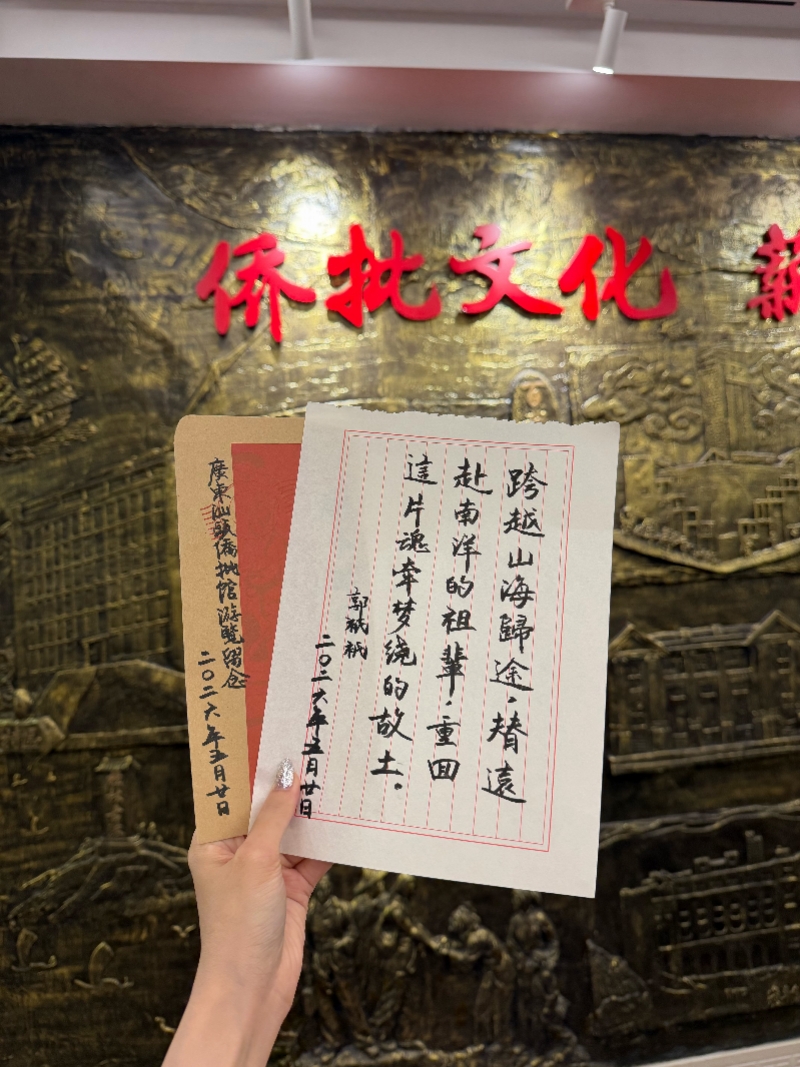 侨批文化 薪
跨越山海歸途，替遠
赴南洋的祖輩，重回
這片魂牵梦绕的故土。
郭
二〇二六年五月廿日
廣東汕頭僑批馆游覽留念
二〇二六年五月廿日